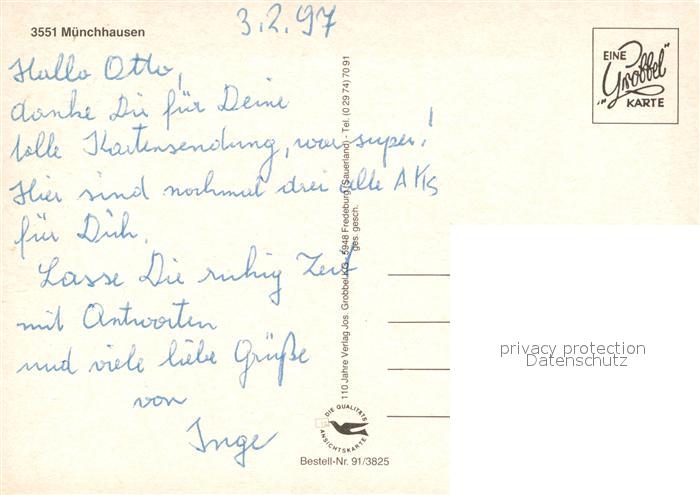 3551 Münchhausen
3.2.97
Hallo Otto,
danke Dir für Deine
tolle Kartensendung, war super!
Hier sind nochmal drei alte AKs
für Dich.
Lasse Dir ruhig Zeit
mit Antworten
und viele liebe Grüße
von
Inge
110 Jahre Verlag Jos. Grobbel KG · 5948 Fredeburg (Sauerland) - Tel. (0 29 74) 70 91
ges. gesch.
EINE
"Grobbel"
KARTE
privacy protection
Datenschutz
DIE QUALITÄTS
ANSICHTSKARTE
Bestell-Nr. 91/3825